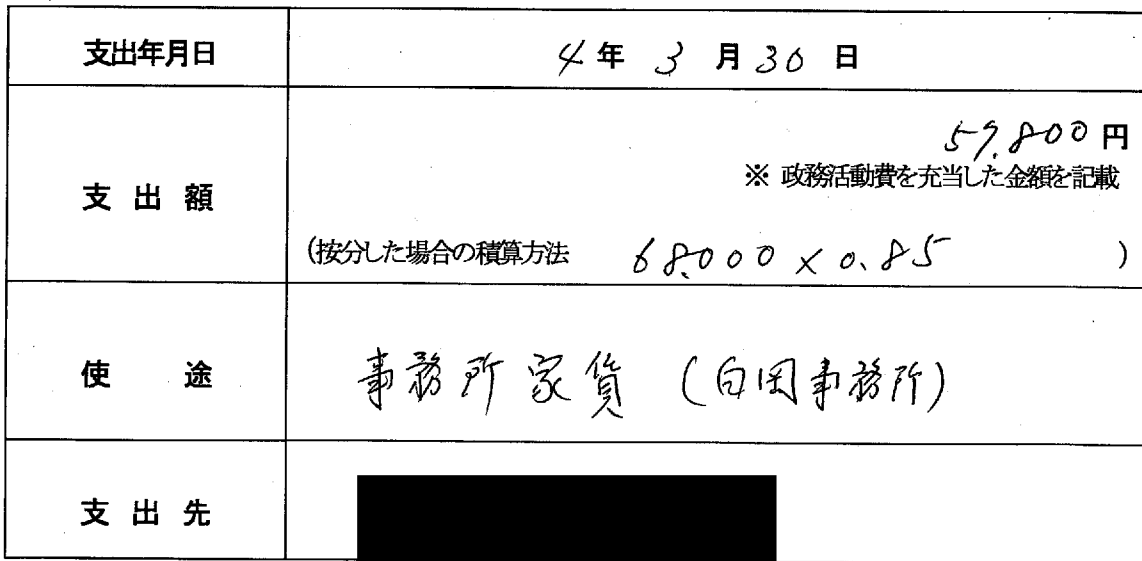 支出年月日 4年3月30日
57,800円
※ 政務活動費を充当した金額を記載
支出額
(按分した場合の積算方法 68,000×0.85 )
使途 事務所家賃(白岡事務所)
支出先